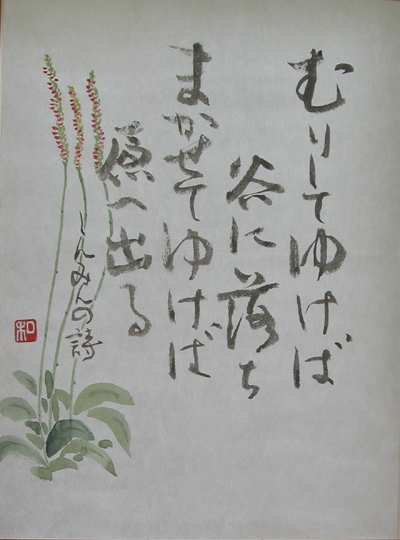 むりしてゆけば
谷に落ち
まかせてゆけば
へ出る
しんみんの詩
和